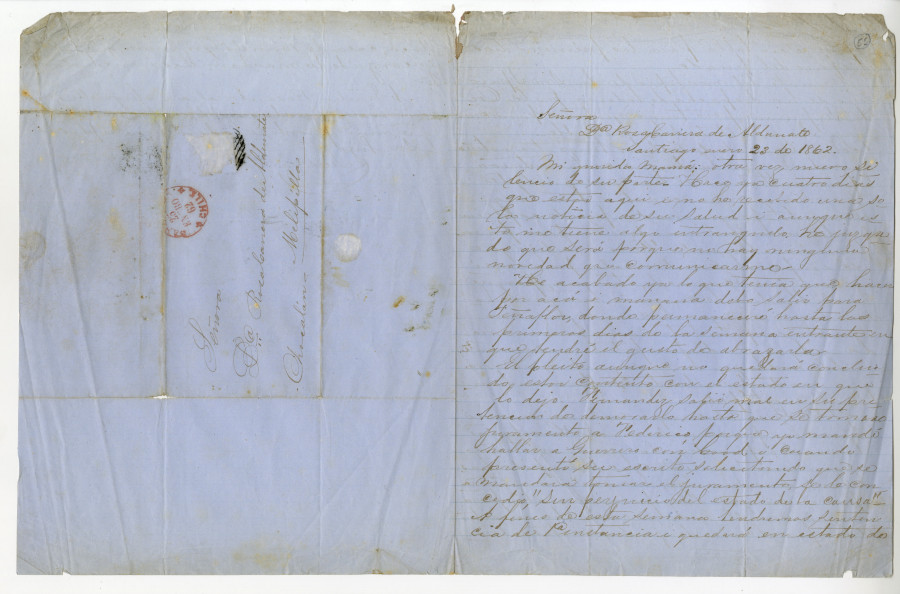 Señora
Da. Rosa Carrera de Aldunate
Santiago enero 23 de 1862.
Mi querida mamá: otra vez nuevo si
lencio de su parte. Hace ya cuatro dias
que estoi aqui i no he tenido una so
la noticia de su salud i aunque es
to me tiene algo he juzga
do que será porque no hay ninguna
novedad que comunicarme.
He acabado ya lo que tenia que hacer
por acá i mañana debo salir para
Peñaflor, donde permaneceré hasta los
primeros dias de la semana entrante en
que tendré el gusto de abrazarla.
El pleito aunque no quedará conclui
do, estoi contento con el estado en que
lo dejo. Fernandez salió mal en su pre
tencion de demorarlo hasta que se tomase
juramento a Federico porque ya mandé
hablar a Guerrero con i cuando
presentó su escrito solicitando que se
mandara tomar el juramento, se le con
cedió, "sin perjuicio del estado de la causa".
A fines de esta semana tendremos senten
cia de 1a instancia i quedará en estado de
Señora
Da. Rosa Carrera de Aldunate
Melipilla
CHILE
62